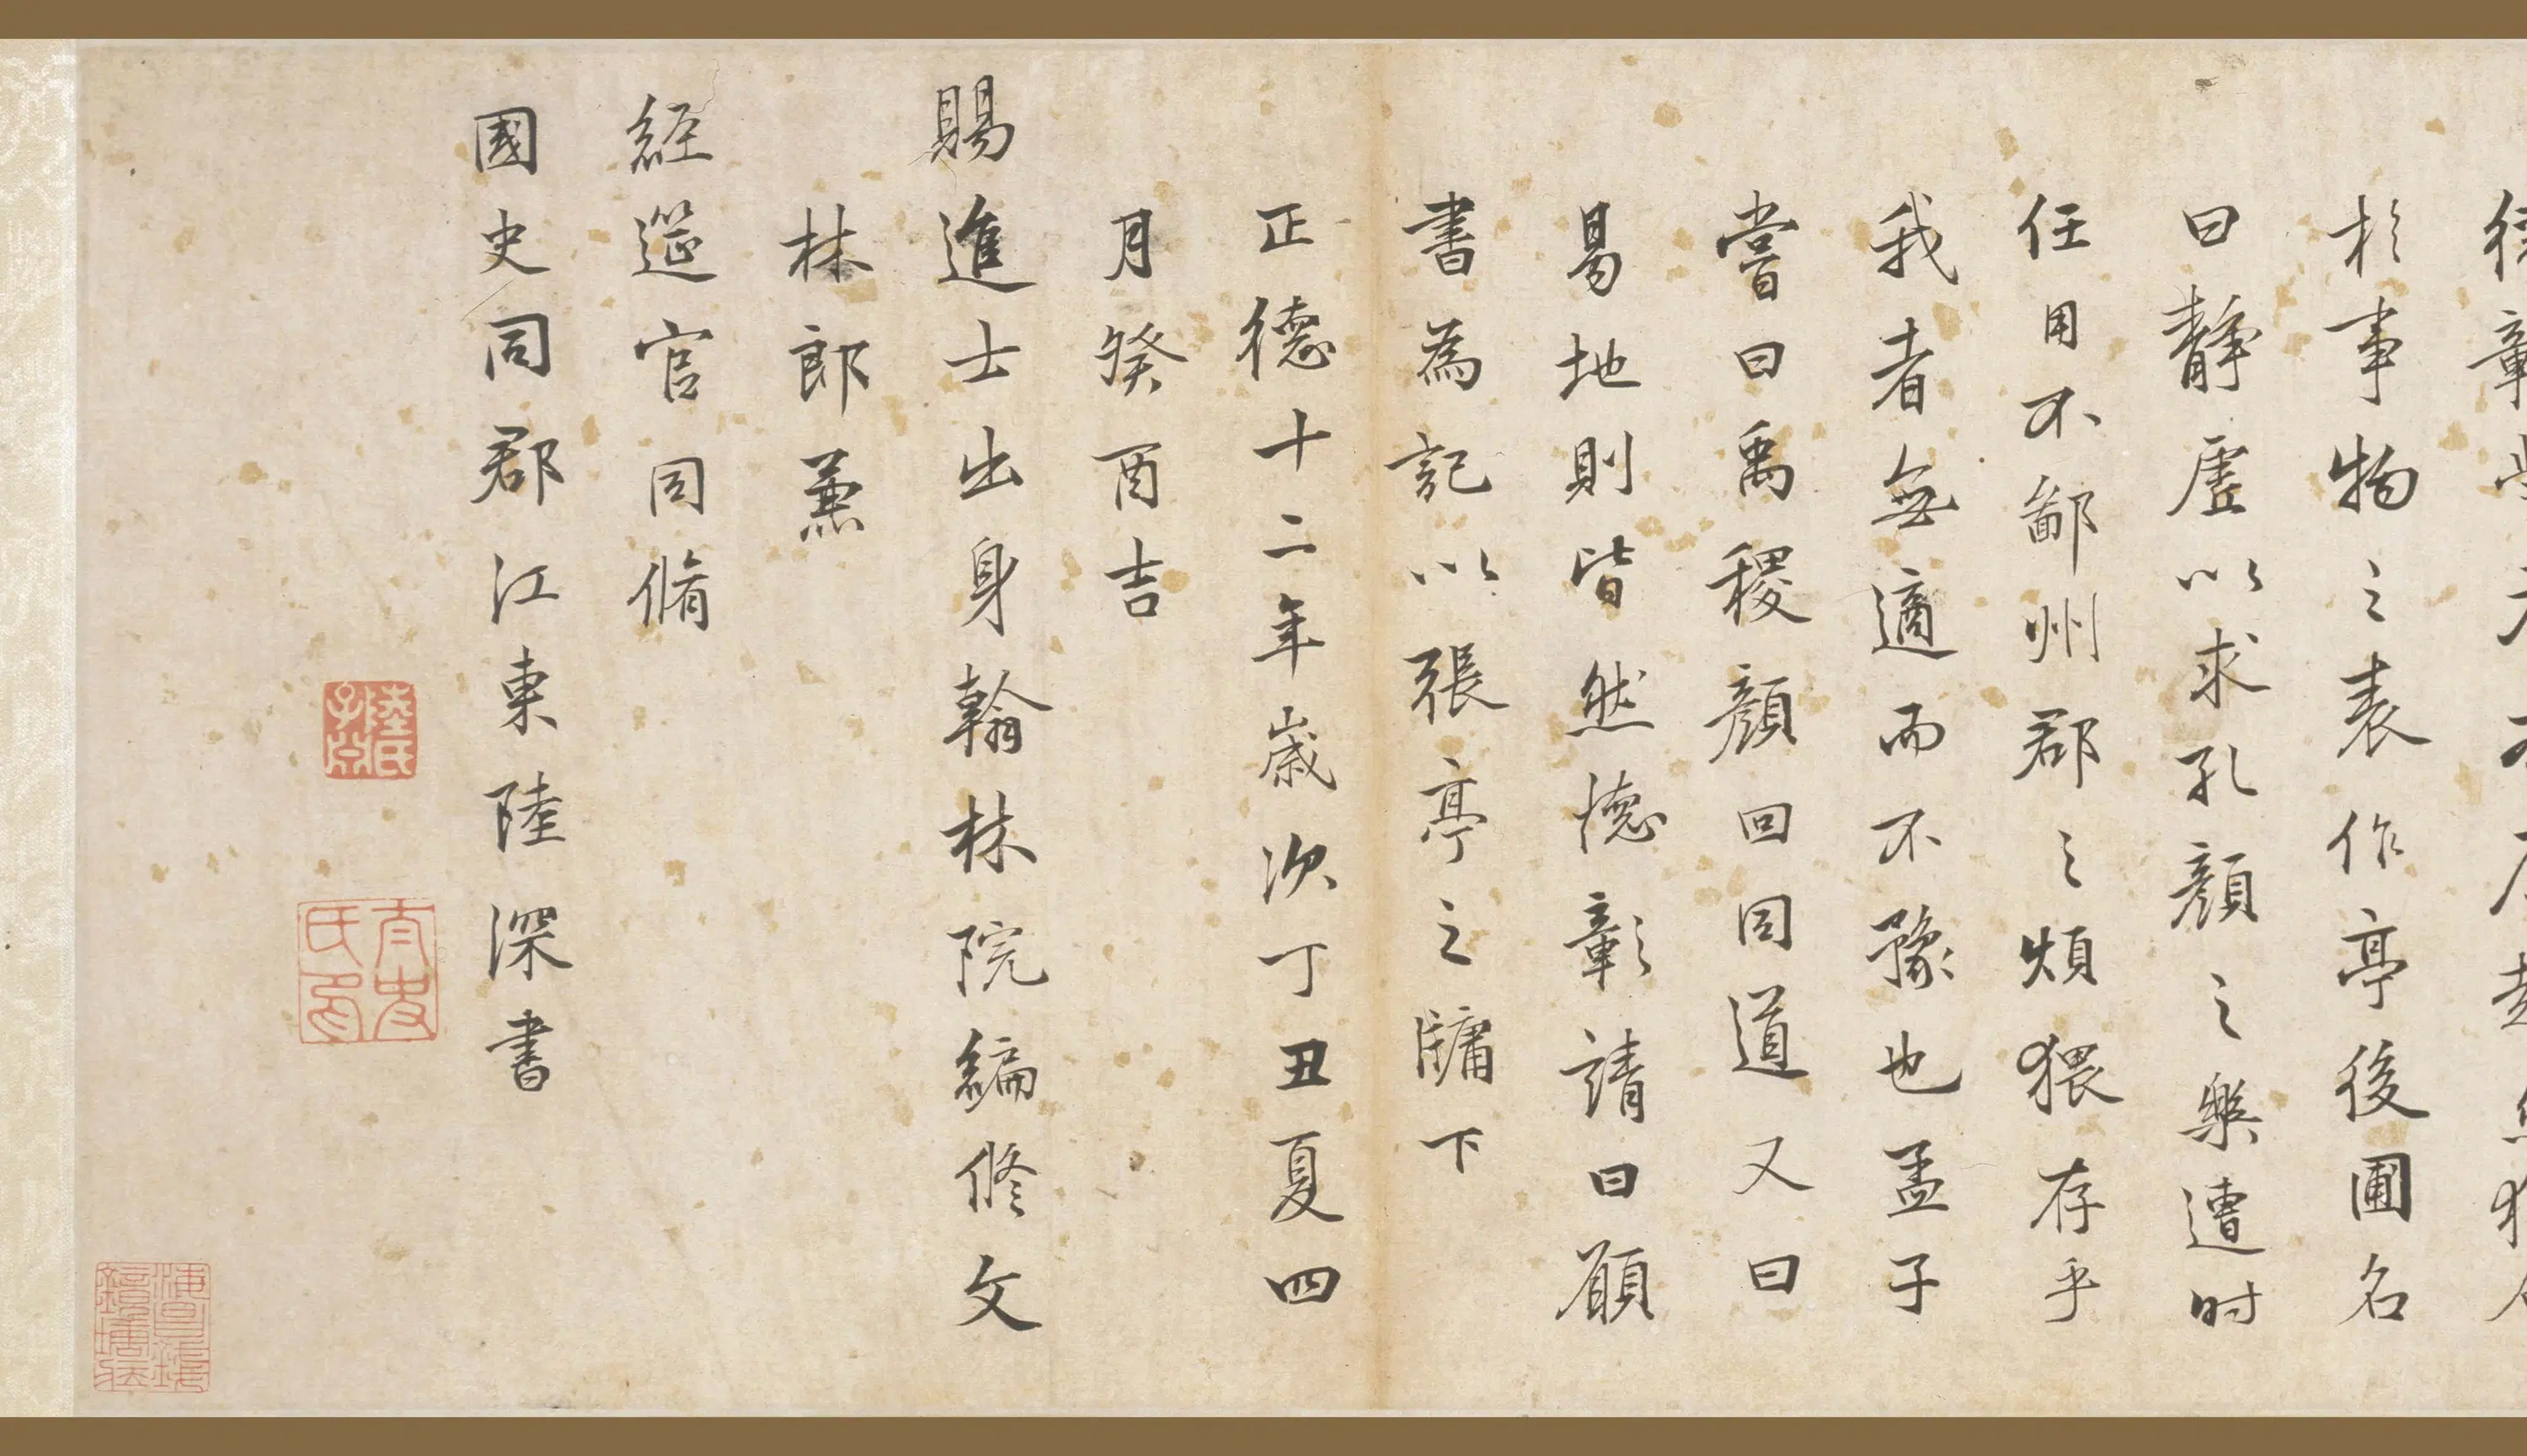 於事物之表作亭後圃名
曰靜虛以求孔顏之樂遭时
任用不鄙州郡之煩猥存乎
我者無適而不豫也孟子
嘗曰禹稷顏回同道又曰
易地則皆然德彰請曰願
書為記以張亭之牖下
正德十二年歲次丁丑夏四
月癸酉吉
賜進士出身翰林院編修文
林郎兼
經筵官同脩
國史同郡江東陸深書
陸氏子淵
太史氏印